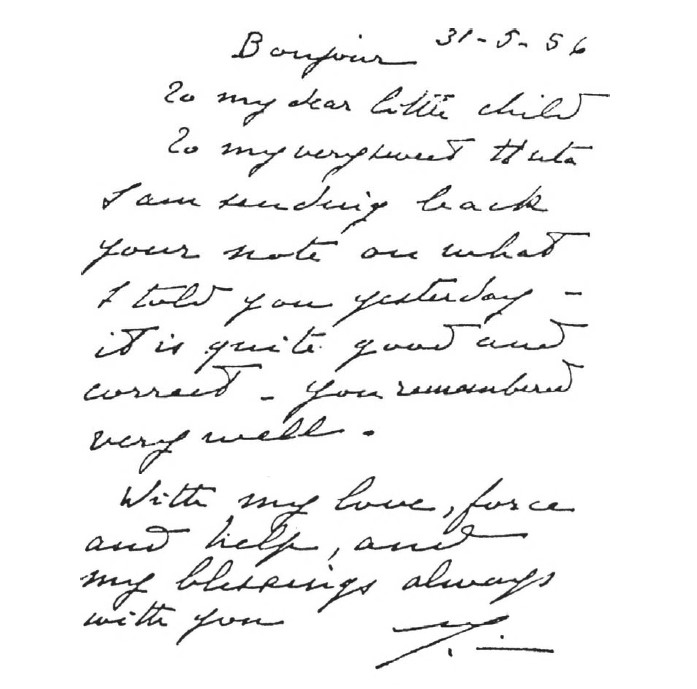 Bonjour 31-5-56
To my dear little child
To my very sweet Huta
I am sending back
your note on what
I told you yesterday -
it is quite good and
correct - you remembered
very well.
With my love, force
and help, and
my blessings always
with you